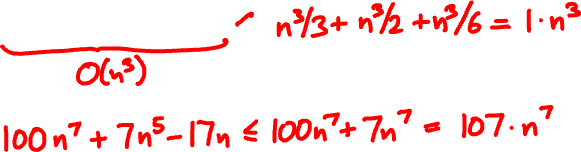 n³/3 + n³/2 + n³/6 = 1·n³
O(n³)
100n⁷ + 7n⁵ - 17n ≤ 100n⁷ + 7n⁷ = 107·n⁷